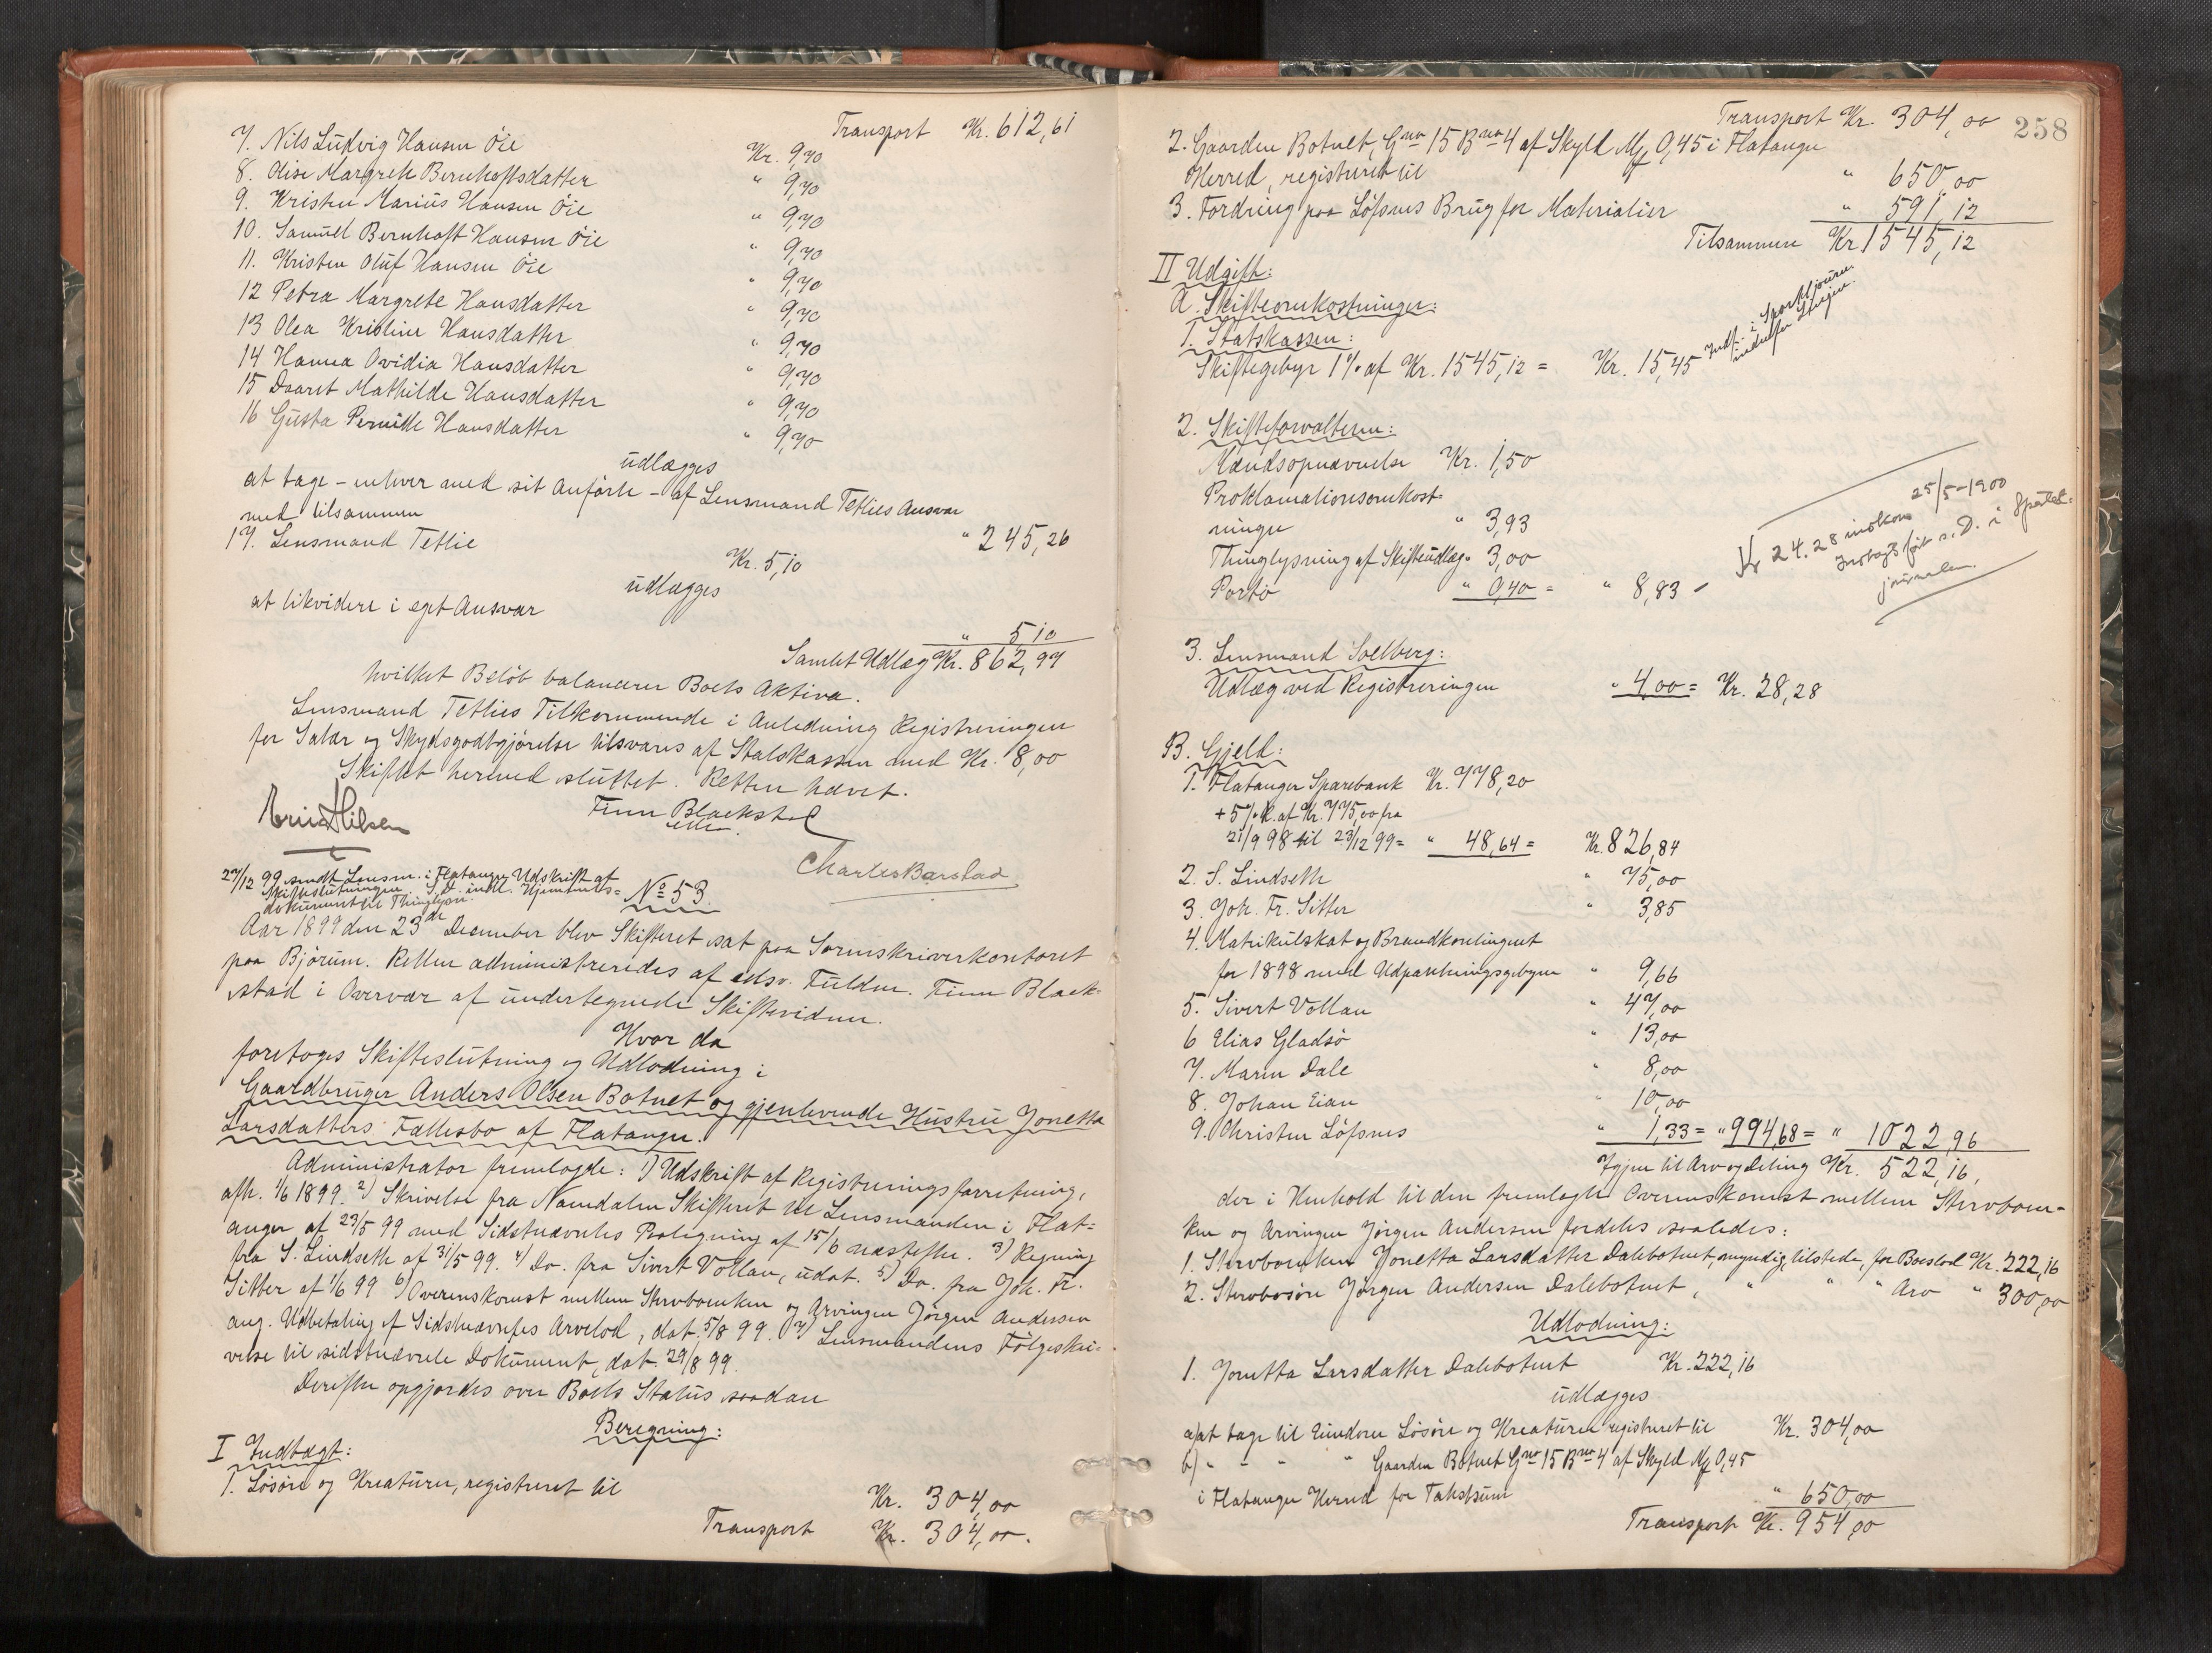 Transport Kr. 612,61
7. Nils Ludvig Hansen Öie Kr. 9,70
8. Elise Margrete Bernhoftsdatter " 9,70
9. Kristen Marius Hansen Öie " 9,70
10. Samuel Bernhoft Hansen Öie " 9,70
11. Kristen Oluf Hansen Öie " 9,70
12 Petra Margrete Hansdatter " 9,70
13 Olea Kristine Hansdatter " 9,70
14 Hanna Ovidia Hansdatter " 9,70
15 Daaret Mathilde Hansdatter " 9,70
16 Gusta Pernille Hansdatter " 9,70
udlægges
at tage - enhver med sit Anførte - af Lensmand Tetlies Ansvar
med tilsammen " 245,26
17. Lensmand Tetlie Kr. 5,10
udlægges
at likvidere i eget Ansvar " 5 10
Samlet Udlæg Kr. 862,97
hvilket Beløb balancerer Boets Aktiva.
Lensmand Tetlies Tilkommende i Anledning Registreringen
for Salær og Skydsgodtgjørelse tilsvares af Statskassen med Kr. 8,00
Skiftet hermed sluttet. Retten hævet.
Finn Blackstad
Charles Barstad
27/12 99 sendt Lensm. i Flatanger Udskrift af
Skifteslutningen S.D. indl. Hjemmels=
dokument til Thinglysn.
No 53.
Aar 1899 den 23de December blev Skifteret sat paa Sorenskriverkontoret
paa Bjørum. Retten administreredes af edsv. Fuldm. Finn Black=
stad i Overvær af undertegnede Skiftevidner.
Hvor da
foretoges Skifteslutning og Udlodning i
Gaardbruger Anders Olsen Botnet og gjenlevende Hustru Jonetta
Larsdatters Fællesbo af Flatanger.
Administrator fremlagde: 1) Udskrift af Registreringsforretning,
afh. 1/6 1899. 2) Skrivelse fra Namdalen Skifteret til Lensmanden i Flat=
anger af 23/5 99 med Sidstnævntes Paategning af 15/6 næstefter. 3) Regning
fra S. Lindseth af 31/5 99. 4) Do. fra Sivert Vollan, udat. 5) Do. fra Joh. Fr.
Sitter af 1/6 99 6) Overenskomst mellem Stervboenken og Arvingen Jørgen Andersen
ang. Udbetaling af Sidstnævntes Arvelod, dat. 5/8 99. 7) Lensmandens Følgeskri=
velse til sidstnævnte Dokument, dat. 29/8 99.
Derefter opgjordes over Boets Status saadan
Beregning:
I Indtægt:
1. Løsøre og Kreaturer, registreret til Kr. 304,00
Transport Kr. 304,00.
258
Transport Kr. 304,00
2. Gaarden Botnet, Gno 15 Bno 4 af Skyld Mk 0,45 i Flatanger
Herred, registreret til " 650,00
3. Fordring paa Løfsnes Brug for Materialier " 591,12
Tilsammen Kr 1545,12
II Udgift:
A. Skifteomkostninger:
1. Statskassen:
Skiftegebyr 1% af Kr. 1545,12 = Kr. 15,45
Indf. i Sportljouren
2. Skifteforvalteren:
Mændsopnævnelse Kr. 1,50
Proklamationsomkost=
ninger " 3,93
Thinglysning af Skifteudlæg " 3,00
Porto " 0,40 = " 8,83
Kr 24.28 indkom 25/5-1900
Indtægtsført s. D. i Sportel=
journalen.
3. Lensmand Solberg:
Udlæg ved Registreringen " 4,00 = Kr. 28,28
B. Gjeld:
1. Flatanger Sparebank Kr. 778,20
+ 5% R. af Kr. 775,00 fra
21/9 98 til 23/12 99 = " 48,64 = Kr. 826,84
2. S. Lindseth " 75,00
3. Joh. Fr. Sitter " 3,85
4. Matrikulskat og Brandkontingent
for 1898 med Udpantningsgebyrer " 9,66
5. Sivert Vollan " 47,00
6 Elias Gladsø " 13,00
7. Maren Dale " 8,00
8. Johan Eian " 10,00
9. Christen Løfsnes " 1,33 = " 994,68 = " 1022,96
Igjen til Arv og Deling Kr. 522,16,
der i Henhold til den fremlagte Overenskomst mellem Stervboen-
ken og Arvingen Jørgen Andersen fordeles saaledes:
1. Stervboenken Jonetta Larsdatter Dalebotnet, myndig, tilstede, for Boeslod Kr. 222,16
2. Stervbosøn Jørgen Andersen Dalebotnet, " " " Arv " 300,00
Udlodning:
1. Jonetta Larsdatter Dalebotnet Kr. 222,16
udlægges
a) at tage til Eiendom Løsøre og Kreaturer registreret til Kr. 304,00
b) " - - " Gaarden Botnet Gno 15 Bno 4 af Skyld Mk 0,45
i Flatanger Herred for Takstsum " 650,00
Transport Kr. 954,00